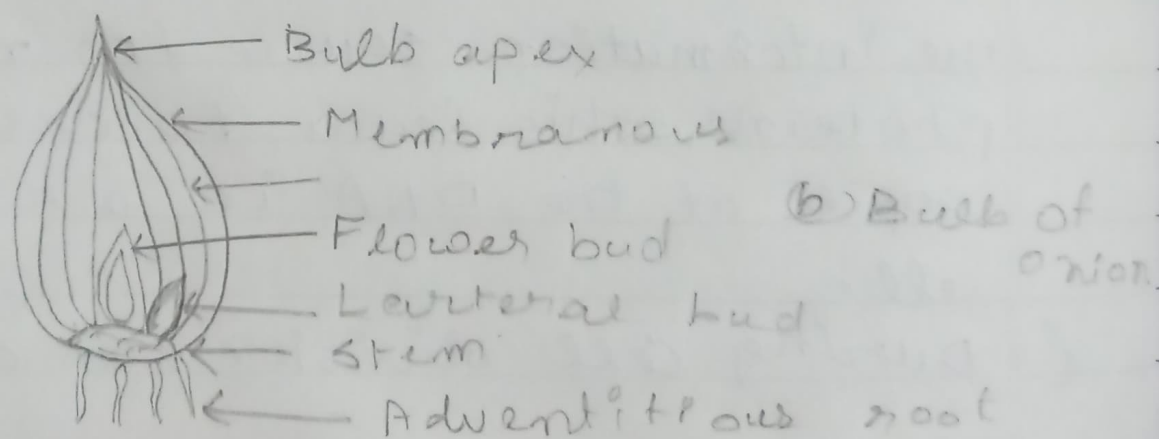 Bulb apex
Membranous
Flower bud
Larteral bud
Stem
Adventitious root
(b) Bulb of
onion